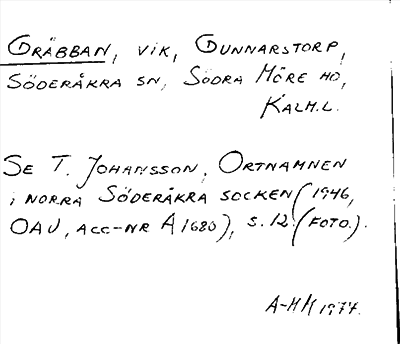 GRÄBBAN, VIK, GUNNARSTORP,
SÖDERÅKRA SN, SÖDRA MÖRE HD,
KALM.L.
SE T. JOHANSSON, ORTNAMNEN
I NORRA SÖDERÅKRA SOCKEN (1946,
OAU, ACC-NR A1680), S. 12 (FOTO.).
A-MM 1974.